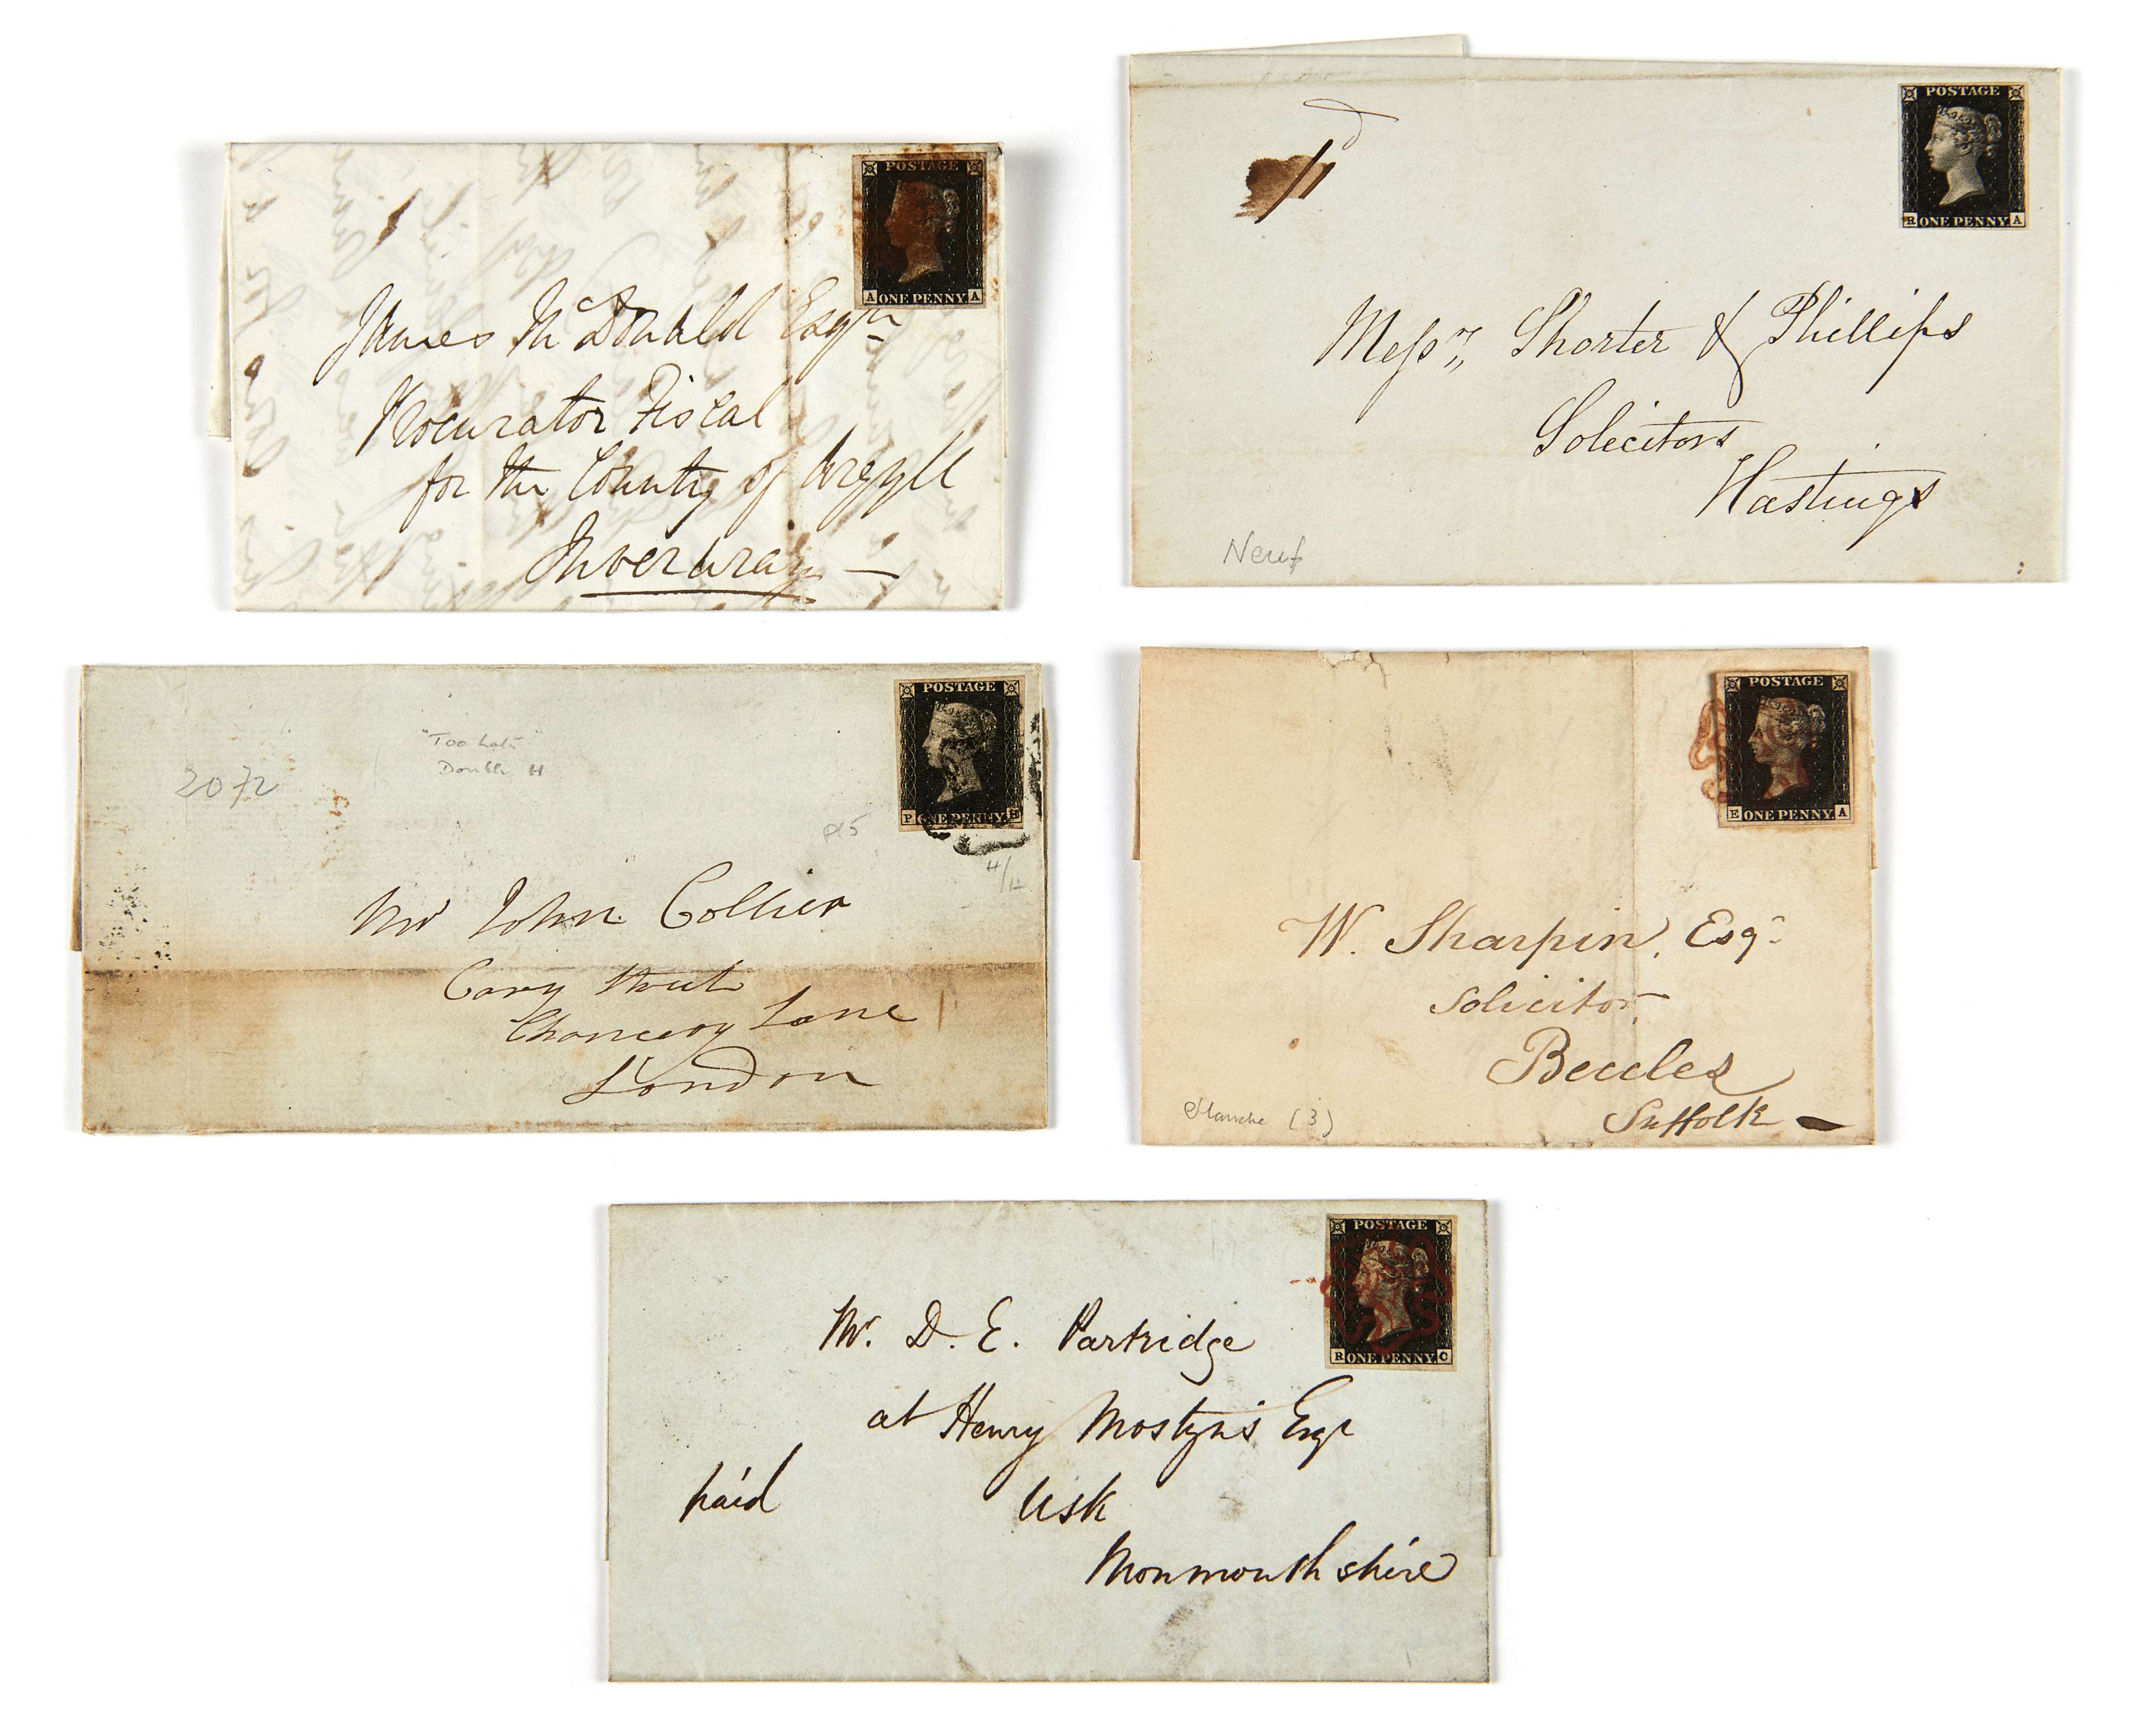 POSTAGE
A ONE PENNY A
James McDonald Esqre
Procurator Fiscal
for the County of Argyll
Inveraray
POSTAGE
R ONE PENNY A
Messrs Shorter & Phillips
Solicitors
Hastings
Neuf
POSTAGE
P ONE PENNY H
"Too Late"
Double H
2072
Mr John Collier
Cary Street
Chancery Lane
London
POSTAGE
E ONE PENNY A
W. Sharpin, Esqr
Solicitor,
Beccles
Suffolk
Planche (3)
POSTAGE
R ONE PENNY C
Mr. D. E. Partridge
at Henry Mostyn's Esqr
paid Usk
Monmouthshire